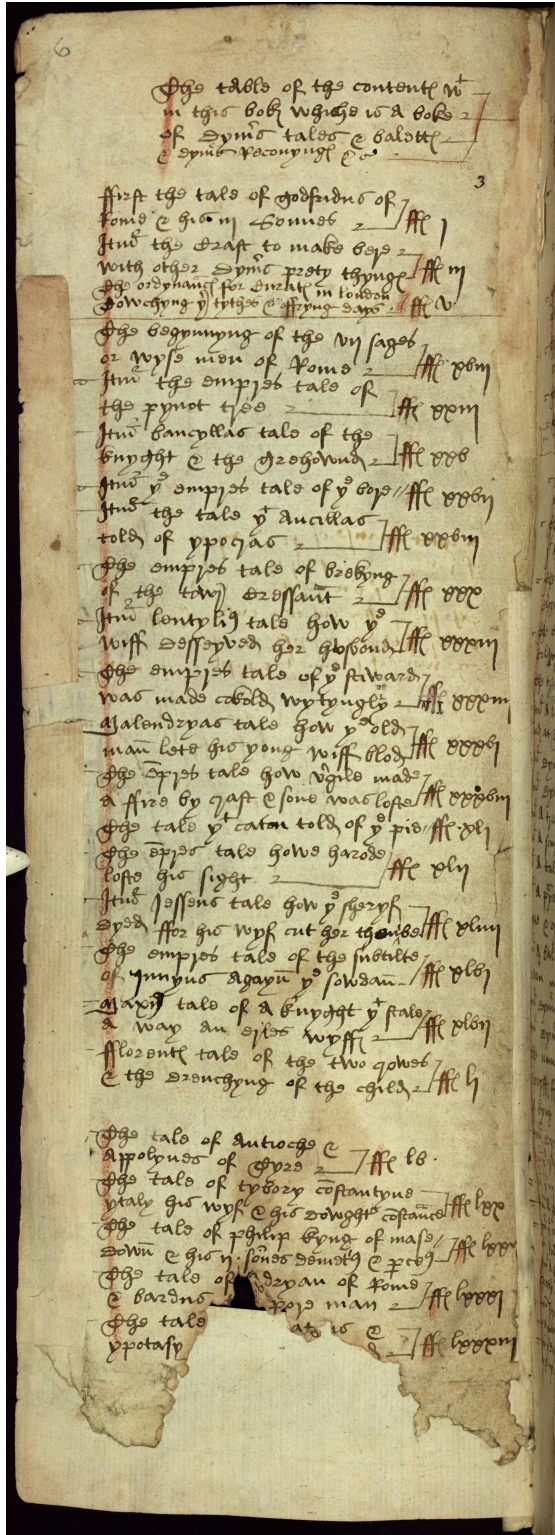 6
The table of the contentes wt
in this boke whiche is A boke
of dyuers tales & balettes
& dyuers Reconynges &c
3
ffirst the tale of godfridus of
Rome & his iij Sonnes ffo j
Itm the craft to make bere
with other dyuers prety thynges ffo iij
The ordynance for Curates in london
Towchyng yer tythes & offryng days ffo v
The begynnyng of the vij sages
or wyse men of Rome ffo xviij
Itm the empres tale of
the pynot tree ffo xxiij
Itm bancyllas tale of the
knyght & the grehownd ffo xxv
Itm ye empres tale of ye bore ffo xxvij
Itm the tale yt Ancillas
told of ypocras ffo xxviij
The empres tale of brekyng
of the Cressaunt ffo xxx
Itm lentylius tale how ye
wiff desseyved her husbond ffo xxxiij
The empres tale of ye stiward
was made cokold wytyngly ffo xxxiiij
Malendryas tale how ye old
man lete his yong wiff blod ffo xxxvj
The empres tale how virgile made
a ffire by craft & sone was loste ffo xxxviij
The tale yt caton told of ye pie ffo xlj
The empres tale howe harode
loste his sight ffo xlij
Itm Jessens tale how ye sheryf
dyed ffor his wyf cut her thombe ffo xliiij
The empres tale of the subtilte
of Jnnyus Agayn ye sowdan ffo xlvj
Maxius tale of a knyght yt stale
a way an erles wyff ffo xlvij
fflorentes tale of the two crowes
& the drenchyng of the child ffo lj
The tale of Antioche &
Appolynes of Tyre ffo lv
The tale of tybory constantyne
ytaly his wyf & his dowghter constance ffo lxx
The tale of philip kyng of mase
down & his ij sones demetrius & perceus ffo lxxv
The tale of Adryan of Rome
& bardus pore man ffo lxxxj
The tale is &
ypotasy ffo lxxxiij